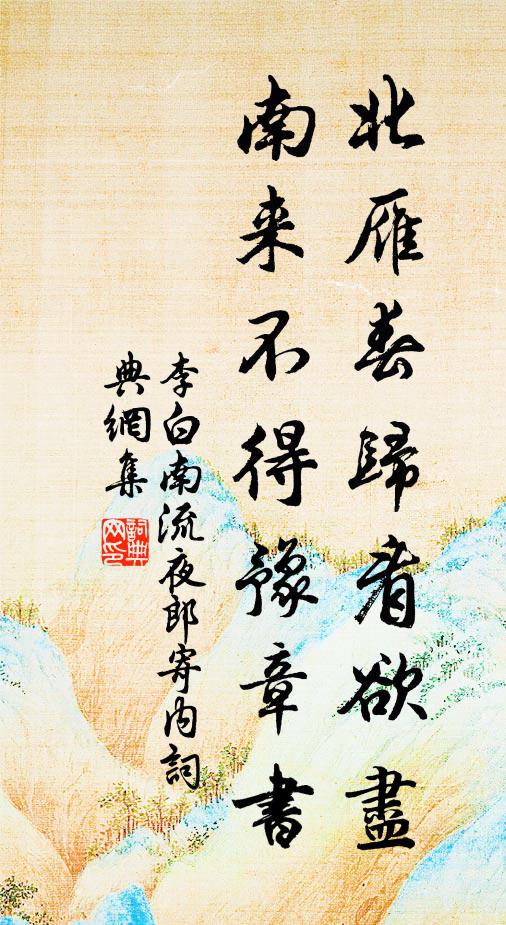 北雁春歸看欲盡
南来不得豫章書
李白南流夜郎寄内詞
典網集
詞典
网印